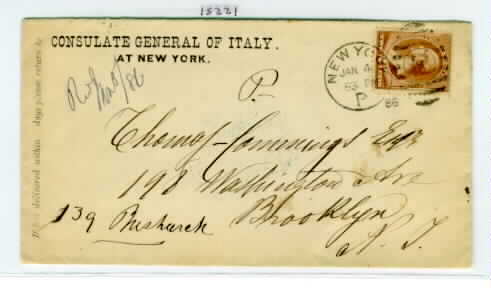 15221
CONSULATE GENERAL OF ITALY.
AT NEW YORK.
If not delivered within days please return to
/86
NEW YO
JAN 4
P
86
P.
Thomas Cummings Esqr
198 Washington Ave
Brooklyn
139